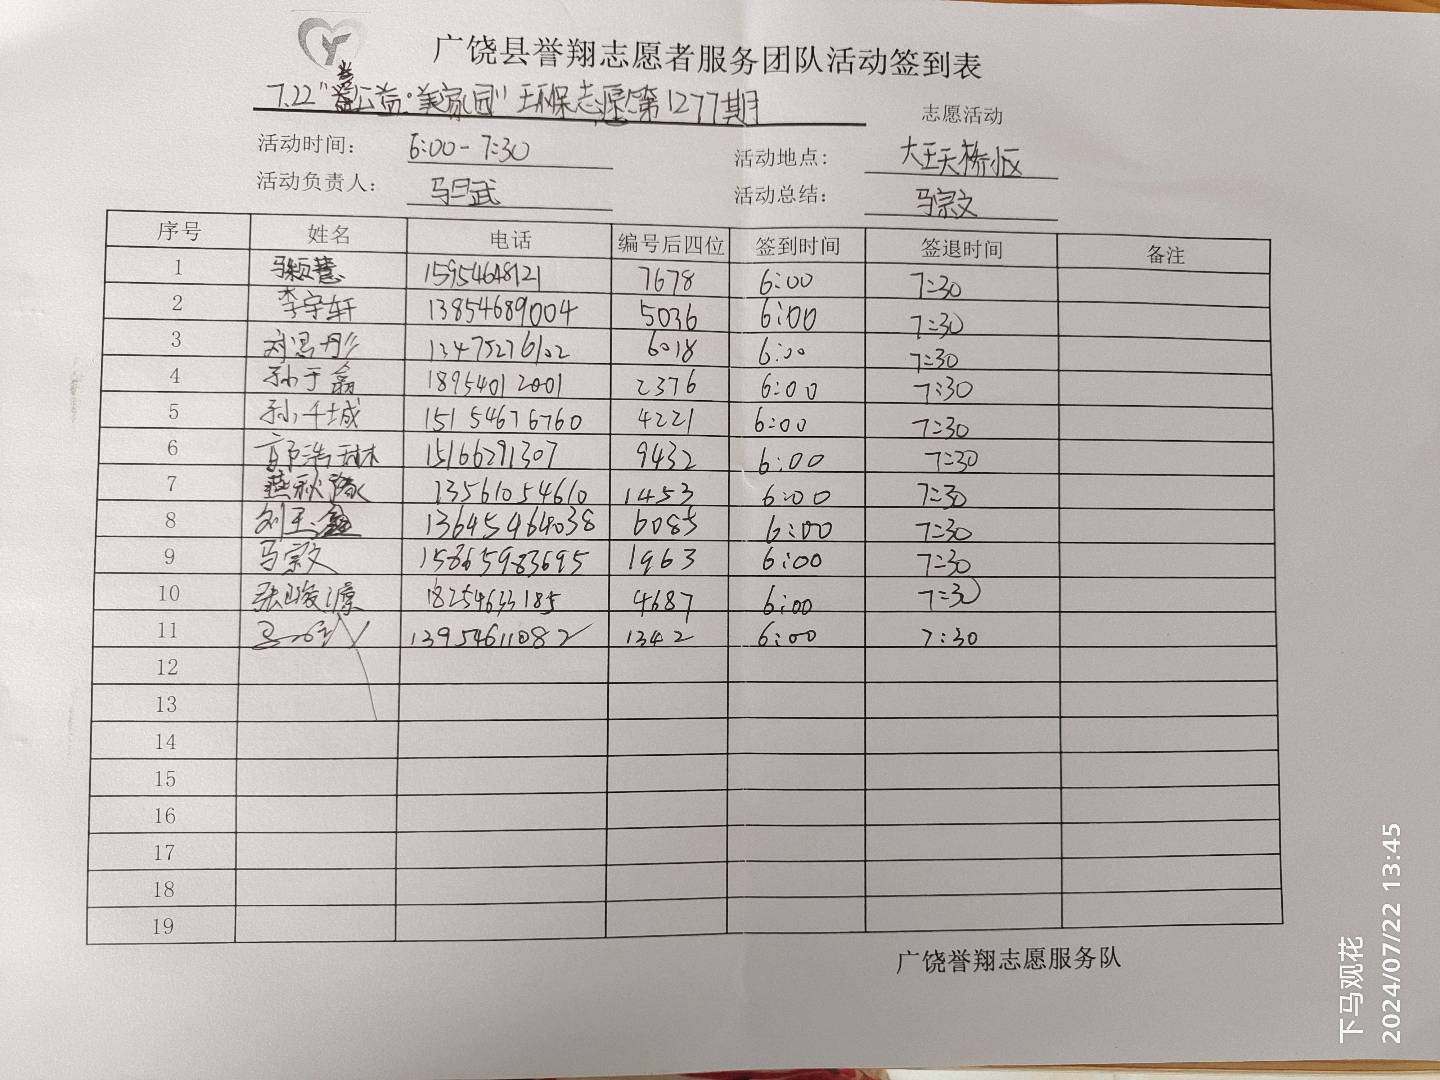 广饶县誉翔志愿者服务团队活动签到表
7.22"善公益·美家园"环保志愿第1277期 志愿活动
活动时间: 6:00-7:30 活动地点: 大王天桥小区
活动负责人: 马旦武 活动总结: 马宗文
序号 姓名 电话 编号后四位 签到时间 签退时间 备注
1 马颖慧 15954648121 7678 6:00 7:30
2 李宇轩 13854689004 5036 6:00 7:30
3 刘冯彤 13475276102 6018 6:00 7:30
4 孙于翕 18954012001 2376 6:00 7:30
5 孙千城 15154676760 4221 6:00 7:30
6 15166291307 9432 6:00 7:30
7 燕秋 13561054610 1453 6:00 7:30
8 刘玉鑫 13645464038 6085 6:00 7:30
9 马宗文 15865983695 1963 6:00 7:30
10 张峻源 18254633185 4687 6:00 7:30
11 13954611082 1342 6:00 7:30
12
13
14
15
16
17
18
19
广饶誉翔志愿服务队
下马观花
2024/07/22 13:45